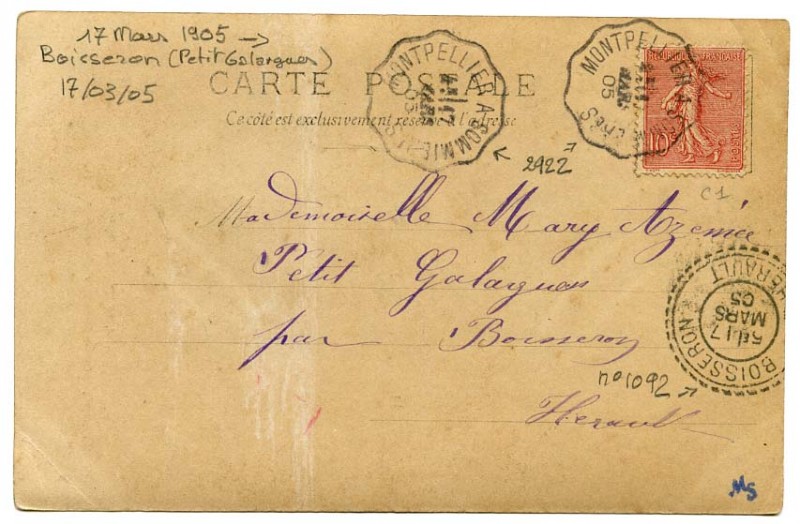 17 Mars 1905 →
Boisseron (Petit Galargues)
17/03/05
CARTE POSTALE
Ce côté est exclusivement réservé à l'adresse
MONTPELLIER A SOMMIÈRES
17
MARS
05
MONTPELLIER A SOMMIÈRES
MARS
05
10
POSTES
2922
C1
Mademoiselle Mary Azémée
Petit Galargues
par Boisseron
Herault
BOISSERON
HÉRAULT
17
MARS
05
n° 1092
MS